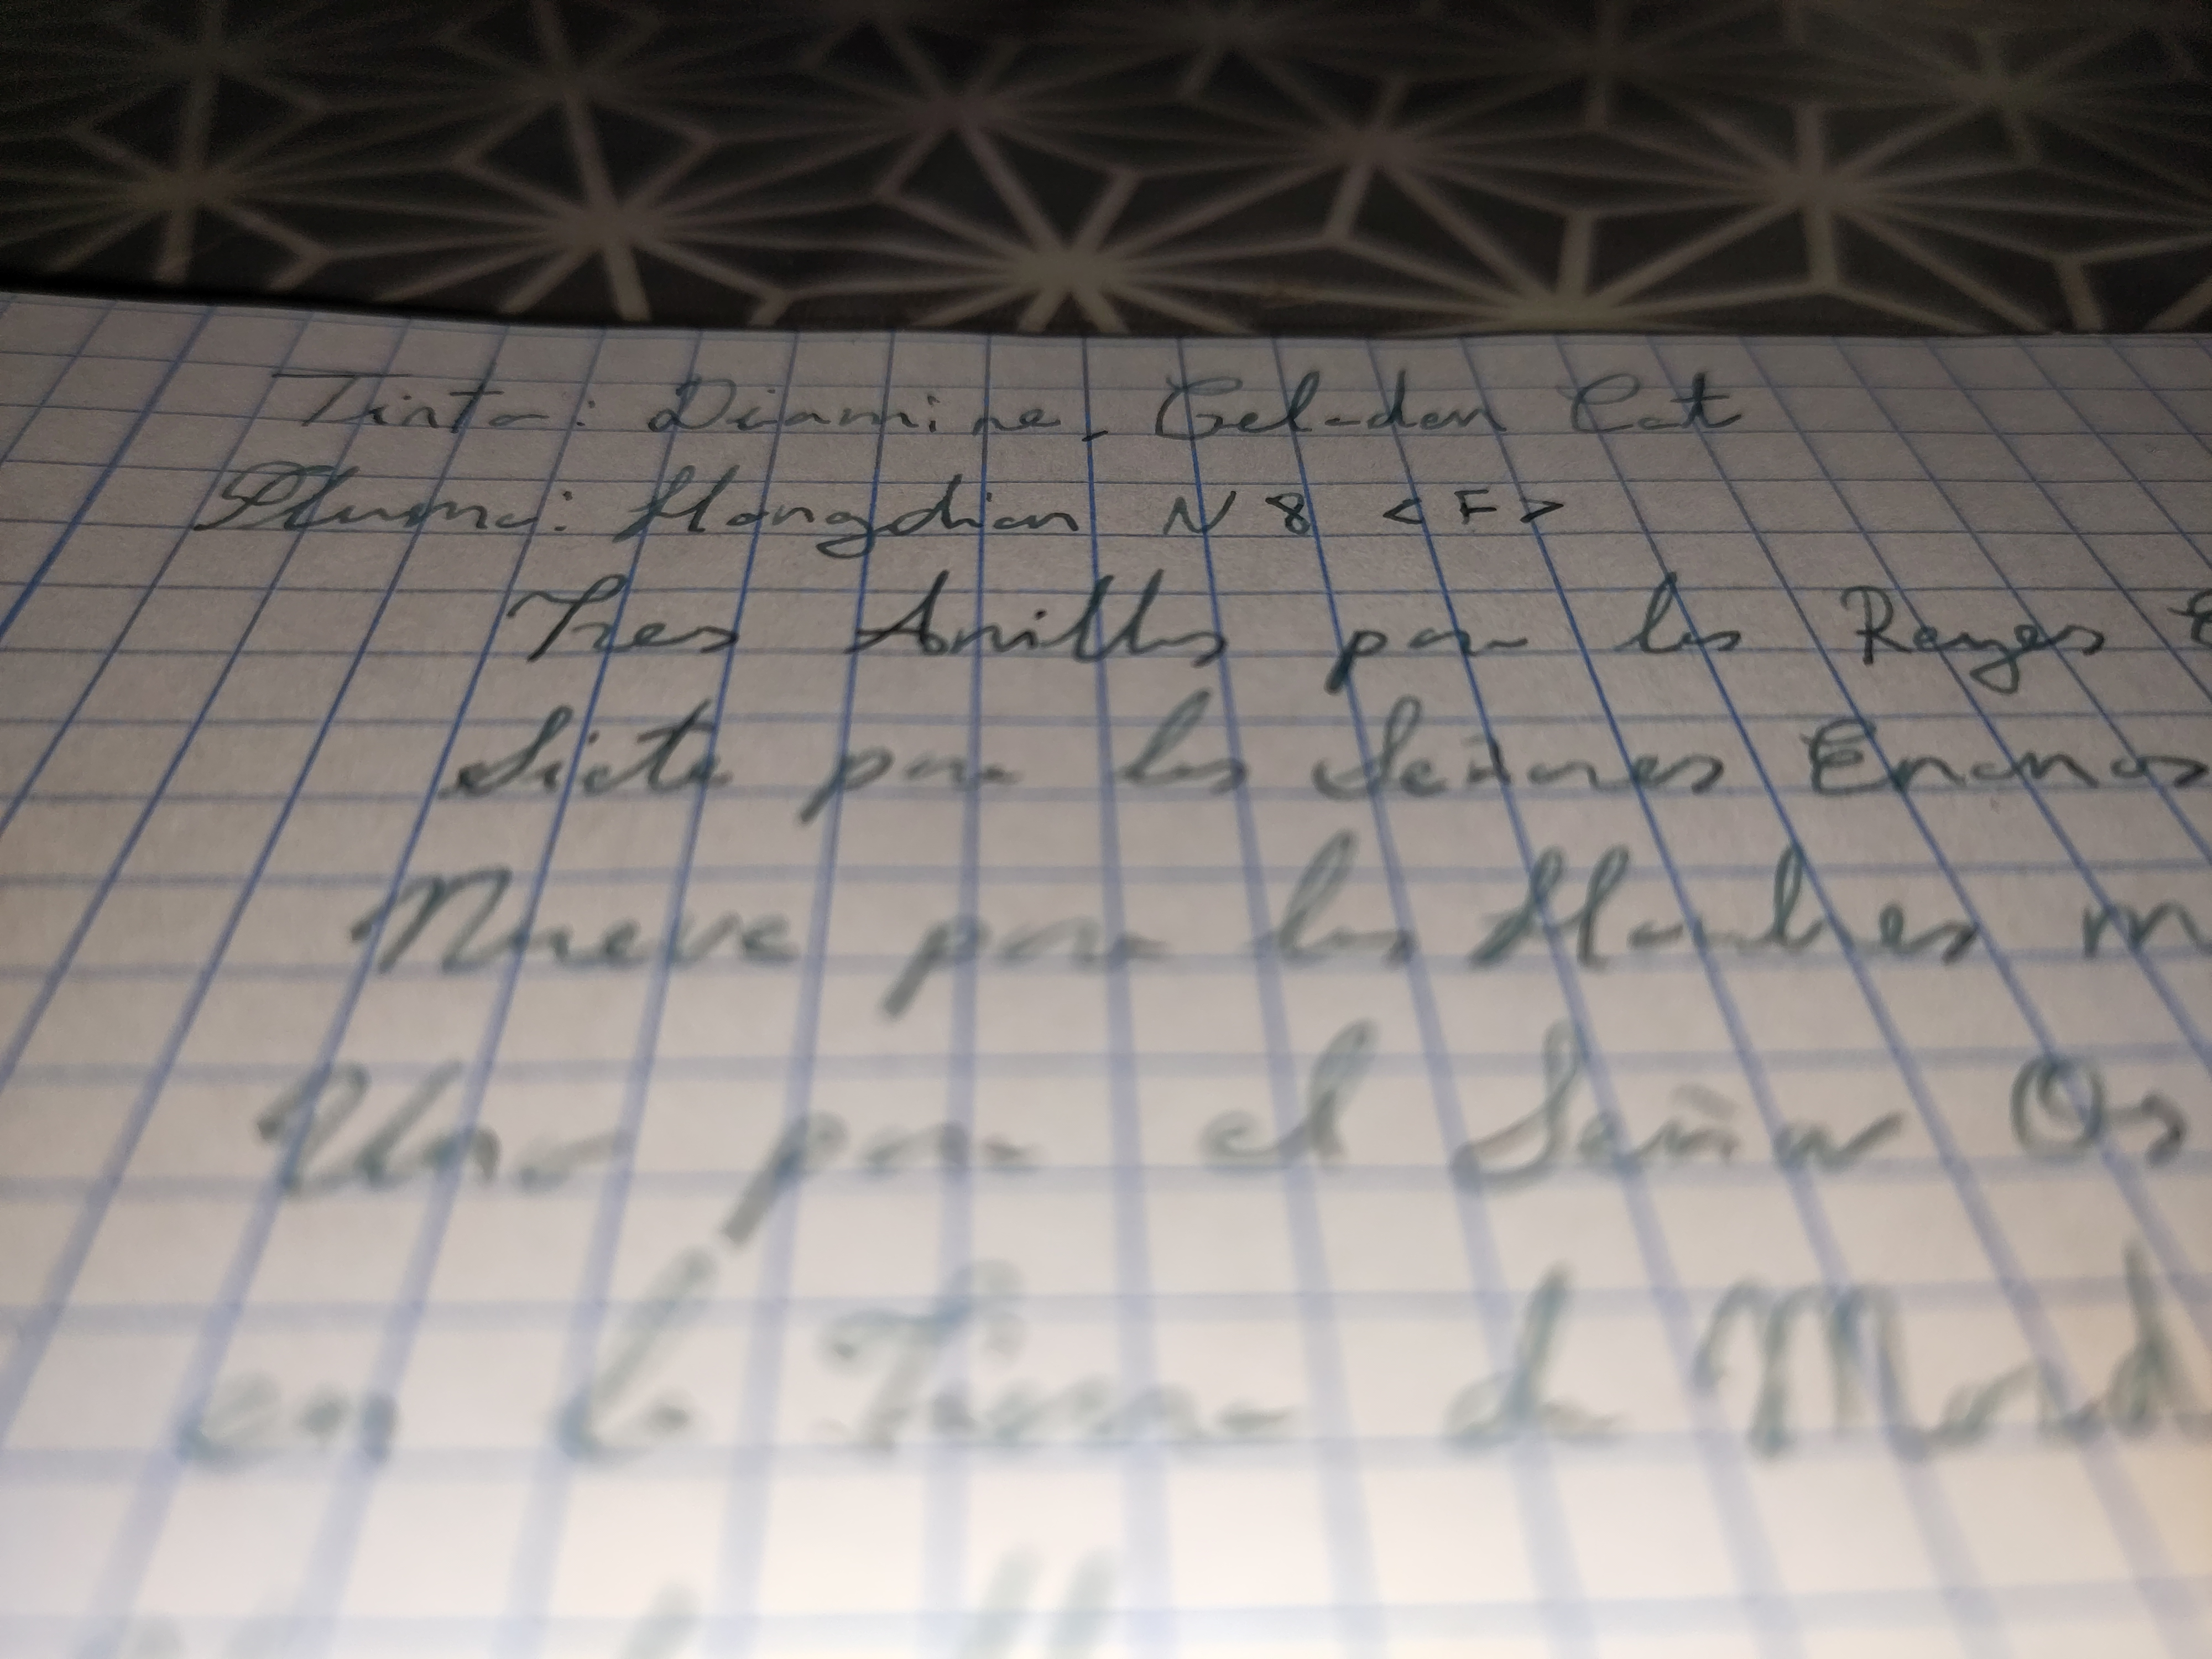 Tinta: Diamine, Celadon Cat
Pluma: Hongdian N8 <F>
Tres Anillos para los Reyes
Siete para los Señores Enanos
Nueve para los Hombres
Uno para el Señor
en la Tierra de